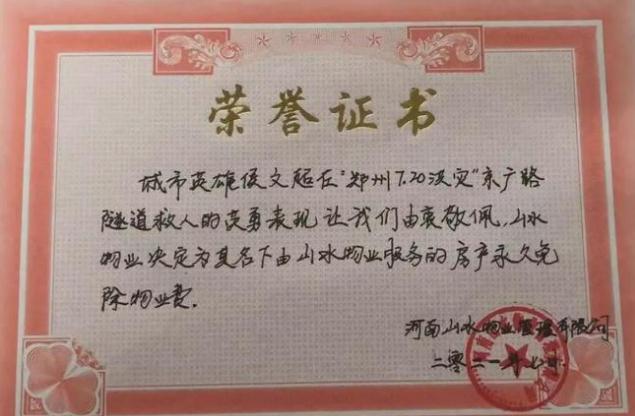 荣誉证书
城市英雄侯文超在“郑州7.20洪灾”京广路
隧道救人的英勇表现让我们由衷敬佩,山水
物业决定为其名下由山水物业服务的房产永久免
除物业费.
河南山水物业管理有限公司
二零二一年七月